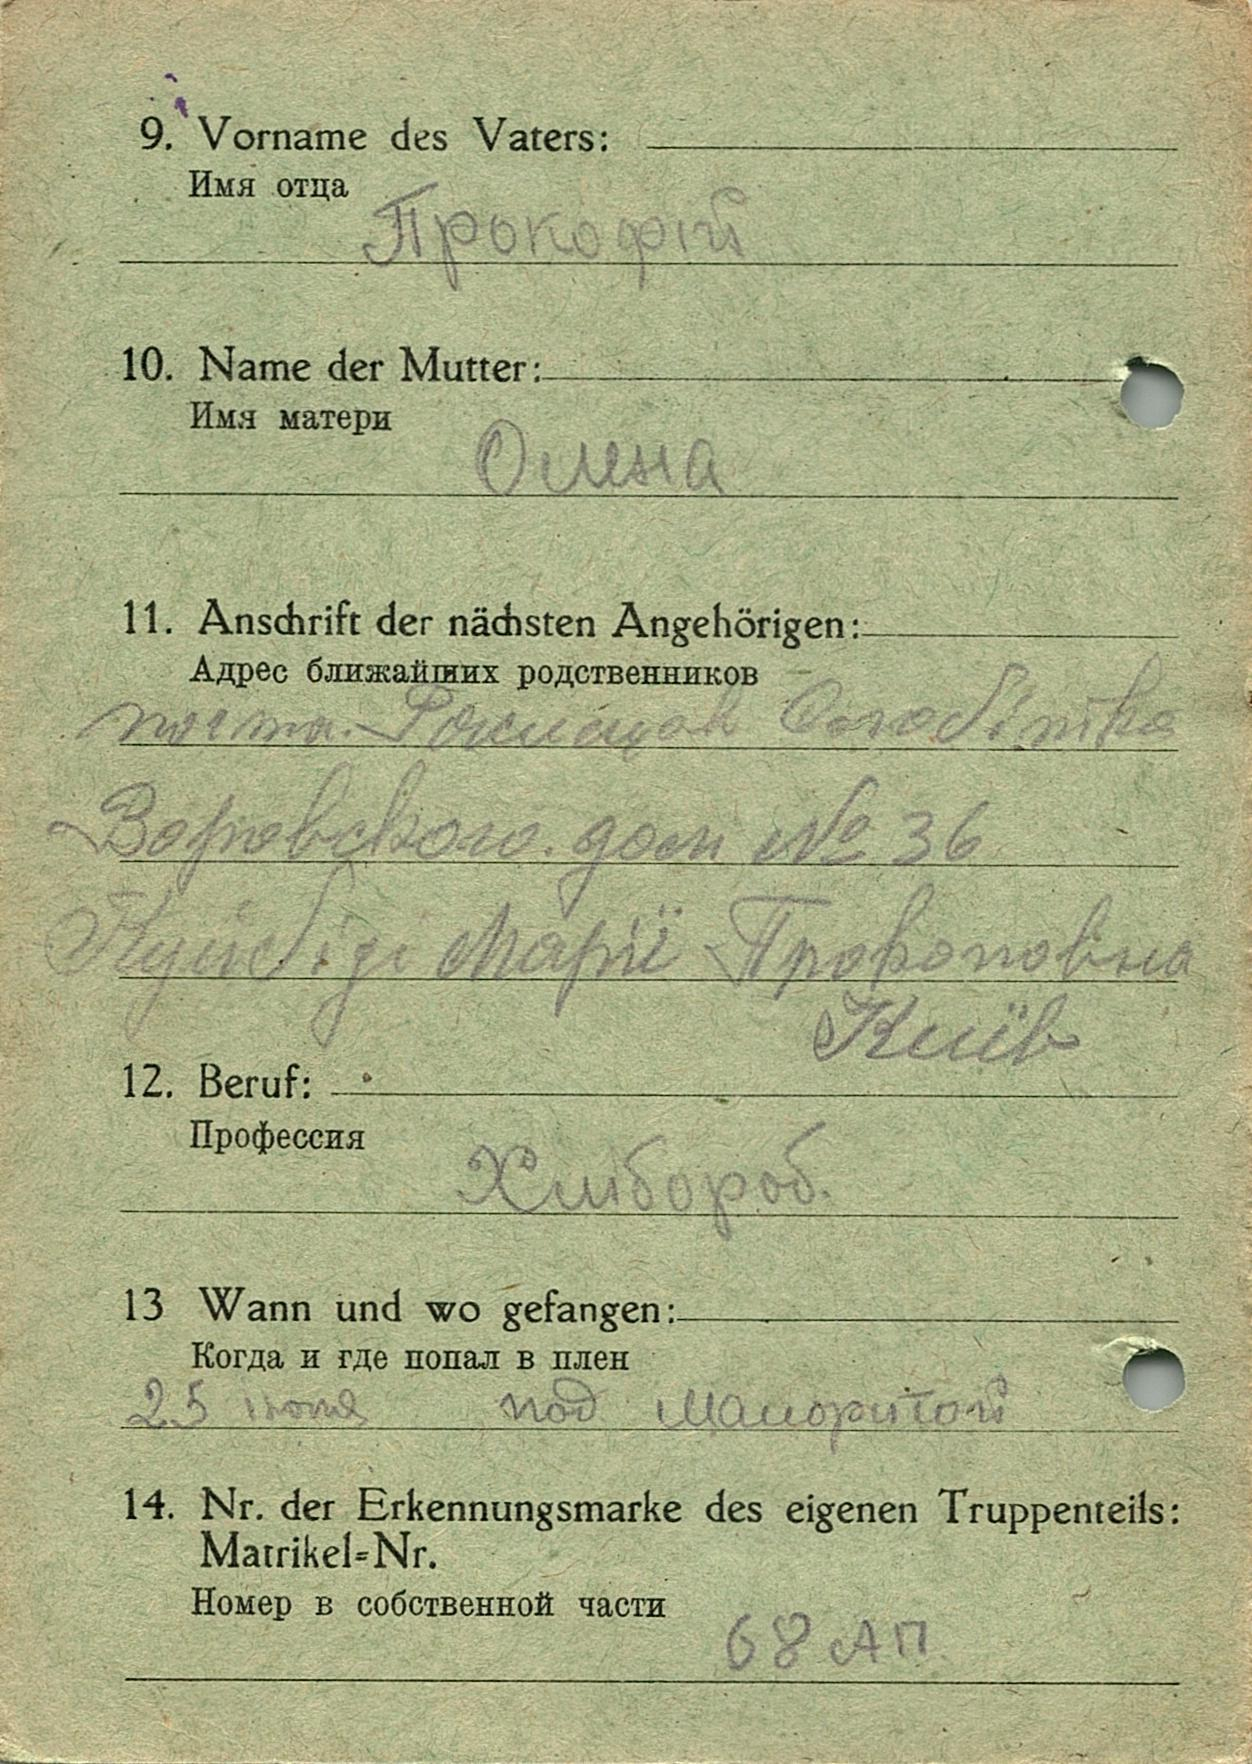 9. Vorname des Vaters:
Имя отца
Прокофій
10. Name der Mutter:
Имя матери
Олена
11. Anschrift der nächsten Angehörigen:
Адрес ближайших родственников
Воровского. дом № 36
Марії Прокоповна
Київ
12. Beruf:
Профессия
Хлібороб.
13 Wann und wo gefangen:
Когда и где попал в плен
25 июня под Малоритой
14. Nr. der Erkennungsmarke des eigenen Truppenteils:
Matrikel=Nr.
Номер в собственной части
68 АП.